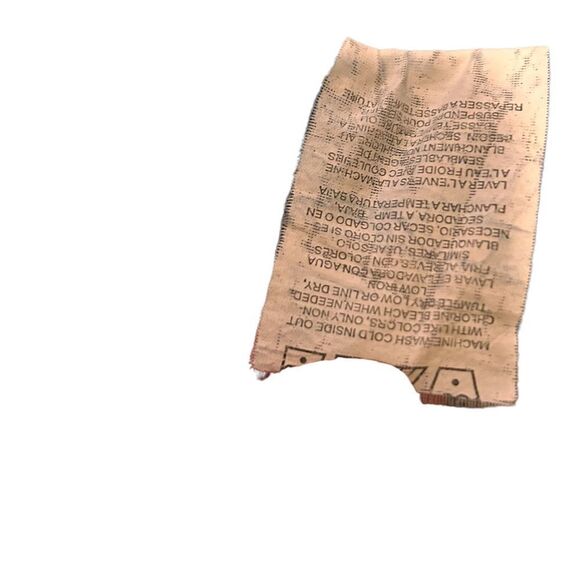 MACHINE WASH COLD INSIDE OUT
WITH LIKE COLORS, ONLY NON-
CHLORINE BLEACH WHEN NEEDED,
TUMBLE DRY LOW OR LINE DRY,
LOW IRON
LAVAR EN LAVADORA CON AGUA
FRIA, AL REVES, CON COLORES
SIMILARES, USE SOLO
BLANQUEADOR SIN CLORO SI ES
NECESARIO, SECAR COLGADO O EN
SECADORA A TEMP. BAJA,
PLANCHAR A TEMPERATURA BAJA
LAVER A L'ENVERS A LA MACHINE
A L'EAU FROIDE AVEC COULEURS
SEMBLABLES, AGENT DE
BLANCHIMENT NON CHLOR AU
BESOIN, SECHER A LA MACHINE A
BASSE TEMPERATURE OU
SUSPENDRE POUR
REPASSER A BASSE TEMPERATURE